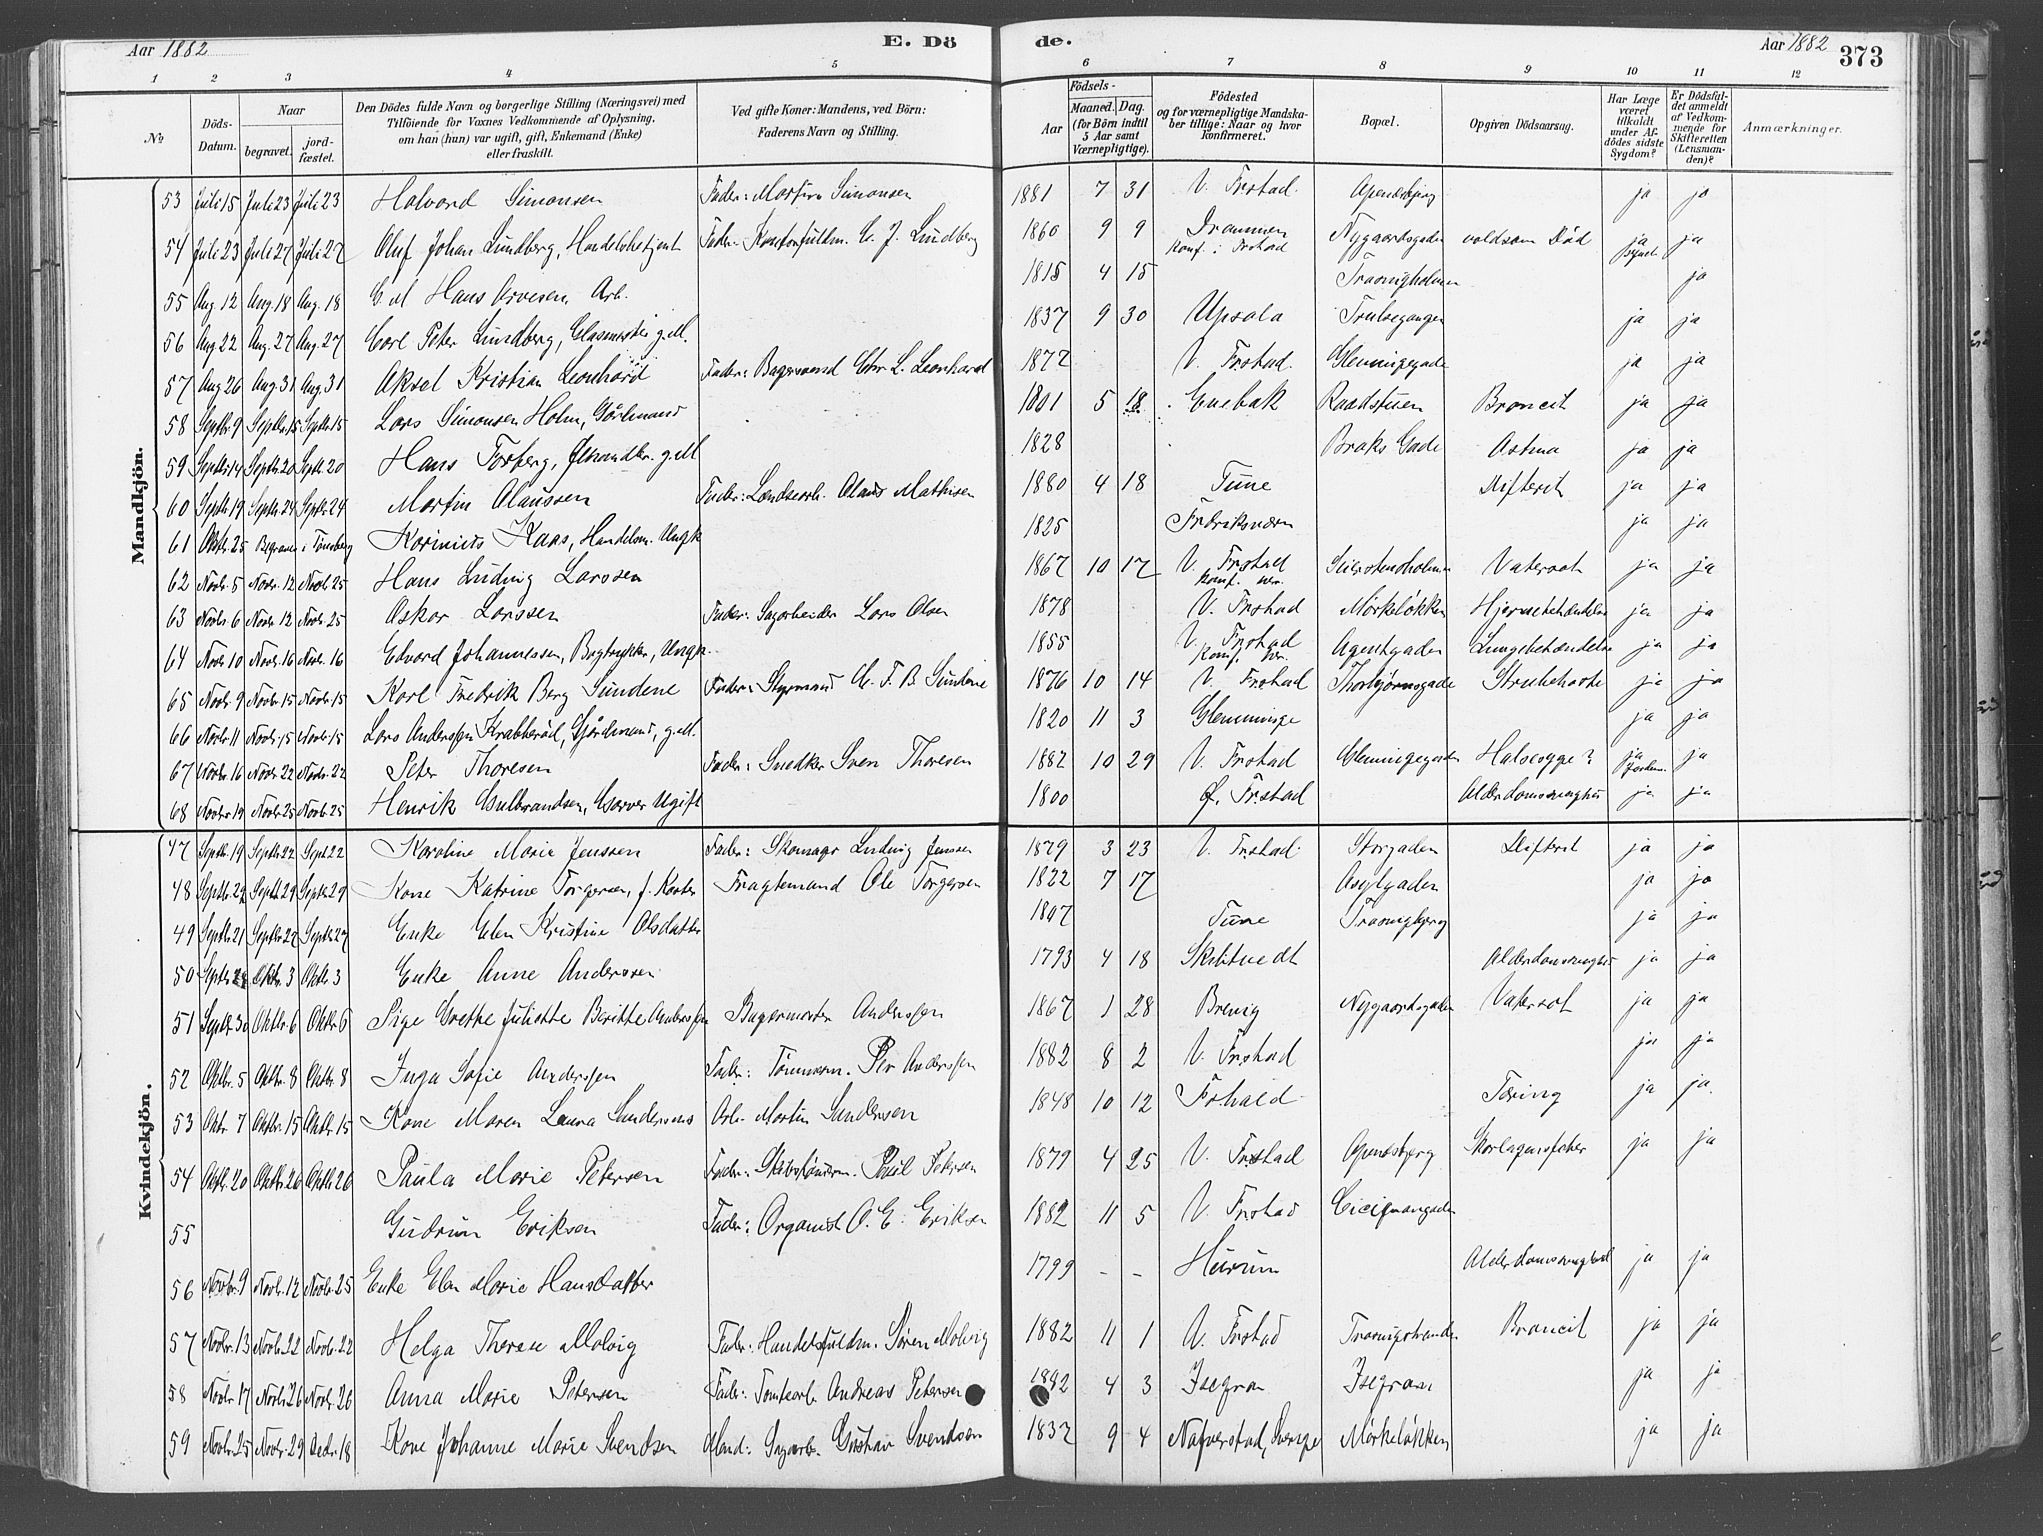 Aar 1882 E. Dö de. Aar 1882 373
1 2 3 4 5 6 7 8 9 10 11 12
No Döds-Datum. Naar begravet. jordfæstet. Den Dödes fulde Navn og borgerlige Stilling (Næringsvei) med Tilföiende for Voxnes Vedkommende af Oplysning, om han (hun) var ugift, gift, Enkemand (Enke) eller fraskilt. Ved gifte Koner: Mandens, ved Börn: Faderens Navn og Stilling. Födsels- Aar Maaned. Dag. (for Börn indtil 5 Aar samt Værnepligtige). Födested og for værnepligtige Mandskaber tillige: Naar og hvor konfirmeret. Bopæl. Opgiven Dödsaarsag. Har Læge været tilkaldt under Afdödes sidste Sygdom? Er Dödsfaldet anmeldt af Vedkommende for Skifteretten (Lensmanden)? Anmærkninger.
Mandkjön.
53 Juli 15 Juli 23 Juli 23 Halvord Simonsen Fader: Martin Simonsen 1881 7 31 V. Frstad. Apenesbjerg ja ja
54 Juli 23 Juli 27 Juli 27 Oluf Johan Lundberg, Handelsbetjent Fader: Kontorfuldm. C. J. Lundberg 1860 9 9 Drammen Konf. i Frstad Nygaardsgaden voldsom Död ja ja
55 Aug 12 Aug. 18 Aug. 18 E.M Hans Arvesen, Arb. 1815 4 15 Trosvigholmen ja
56 Aug 22 Aug. 27 Aug. 27 Carl Peter Lundberg, Glasmester g.M. 1837 9 30 Upsala Trulsegangen ja ja
57 Aug 26 Aug. 31 Aug 31 Aksel Kristian Leonhard Fader: Bagersvend Chr L. Leonhard 1872 V. Frstad. Glemmigegade ja ja
58 Septb. 9 Septbr. 15 Septb. 15 Lars Simonsen Holm, Gårdmand 1801 5 18 Enebak Raadstuen Broncit ja ja
59 Septb. 14 Septb 20 Septb 20 Hans Torberg, g.M 1828 Braks Gade Astma ja ja
60 Septb 19 Septb 24 Septb 24 Martin Olaussen Fader: Landsarb. Olaus Mathisen 1880 4 18 Tune Difterit ja ja
61 Oktbr. 25 Begraven i Tönsberg Karinius Kaas, Handelsm. Ungk 1825 Fredriksværn ja ja
62 Novbr. 5 Novbr. 12 Novbr 25 Hans Ludvig Larssen 1867 10 17 V. Frstad Konf. her. Vatersot ja ja
63 Novbr. 6 Novbr. 12 Novbr. 25 Oskar Larssen Fader: Sagarbeider Lars Olsen 1878 V. Frstad Mörkeløkken Hjernebetændelse ja ja
64 Novbr 10 Novbr. 16 Novbr. 16 Edvard Johannessen, Bogtrykker, Ungk. 1855 V. Frstad Konf. her. Agentgaden Lungebetændelse ja ja
65 Novbr. 9 Novbr. 15 Novbr. 15 Karl Fredrik Berg Sundene Fader: Styrmand C. F. B Sundene 1876 10 14 V. Frstad Thorbjørnsgade Strubehoste ja ja
66 Novbr. 11 Novbr. 15 Novbr. 15 Lars Anderssen Krabberöd, Gårdmand, g.M. 1820 11 3 Glemminge ja ja
67 Novbr. 16 Novbr 22 Novbr. 22 Peter Thoresen Fader: Snedker Sven Thoresen 1882 10 29 V. Frstad Glemmigegaden Halssyge? ja ja
68 Novbr 19 Novbr. 25 Novbr. 25 Henrik Gulbrandsen, Garver Ugift 1800 Ø. Frstad Alderdomssvaghed ja ja
Kvindekjön.
47 Septb. 19 Septb 22 Septb 22 Karoline Marie Jenssen Fader: Skomagr Ludvig Jenssen 1879 3 23 V. Frstad. Storgaden Difterit ja ja
48 Septb. 22 Septb 29 Septb 29 Kone Katrine Torgersen, f. Fragtemand Ole Torgersen 1822 7 17 Asylgaden ja ja
49 Septb 21 Septb 27 Septb 27 Enke Elen Kristine Olsdatter 1807 Tune Trosvigbjerg ja ja
50 Septb 28 Oktbr. 3 Oktbr 3 Enke Anne Anderssen 1793 4 18 Skibtvedt Alderdomssvaghed ja ja
51 Septb. 30 Oktbr 6 Oktbr 6 Pige Grethe Juliatte Beritthe Anderssen Bagermester Anderssen 1867 1 28 Brevig Nygaardsgaden Vatersot ja ja
52 Oktbr. 5 Oktbr. 8 Oktbr 8 Inga Sofie Anderssen Fader: Tömmerm. Per Anderssen 1882 8 2 V. Frstad ja ja
53 Oktbr 7 Oktbr. 15 Oktbr 15 Kone Maren Laura Gundersens Arb. Martin Gundersen 1848 10 12 Frhald Tæring ja ja.
54 Oktbr. 20 Oktbr. 26 Oktbr 26 Paula Marie Petersen Fader: Skibstömerm. Paul Petersen 1879 4 25 V. Frstad Apenesbjerg Skarlagensfeber ja ja
55 Gudrun Eriksen Fader: Organist O. E. Eriksen 1882 11 5 V. Frstad Cicignongaden
56 Novbr. 9 Novbr. 12 Novbr. 25 Enke Elen Marie Hansdatter 1799 - - Hurum Alderdomssvaghed ja ja
57 Novbr. 13 Novbr. 22 Novbr. 22 Helga Therese Molvig Fader: Handelsfuldm. Sören Molvig 1882 11 1 V. Frstad Trosvigstranden Broncit ja ja
58 Novbr. 17 Novbr. 26 Novbr. 26 Anna Marie Petersen Fader: Tomtearb. Andreas Petersen 1882 4 3 Isegran Isegran ja ja
59 Novbr. 25 Novbr. 29 Decbr. 18 Kone Johanne Marie Svendsen Mand: Sagarb. Gustav Svendsen 1832 9 4 Naverstad, Sverige Mörkeløkken ja ja